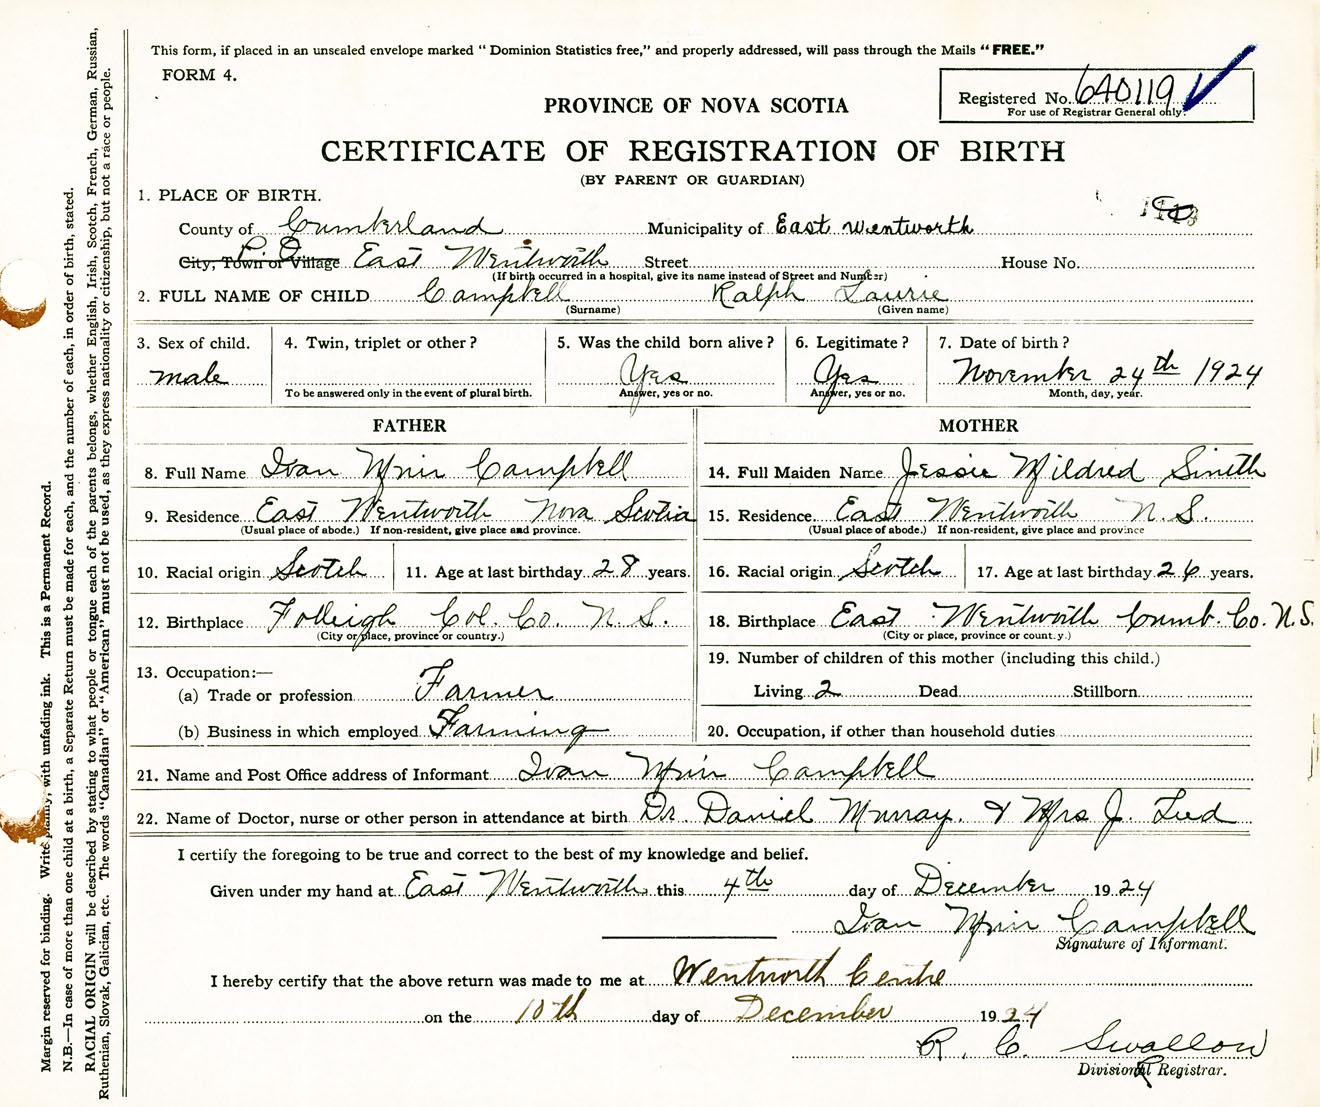 This form, if placed in an unsealed envelope marked “ Dominion Statistics free,” and properly addressed, will pass through the Mails “ FREE.”
FORM 4.
Registered No. 640119
For use of Registrar General only.
PROVINCE OF NOVA SCOTIA
CERTIFICATE OF REGISTRATION OF BIRTH
(BY PARENT OR GUARDIAN)
1. PLACE OF BIRTH.
County of Cumberland Municipality of East Wentworth
P. O.
City, Town or Village East Wentworth Street House No.
(If birth occurred in a hospital, give its name instead of Street and Number)
2. FULL NAME OF CHILD Campbell Ralph Laurie
(Surname) (Given name)
3. Sex of child. 4. Twin, triplet or other ? 5. Was the child born alive ? 6. Legitimate ? 7. Date of birth ?
male Yes Yes November 24th 1924
To be answered only in the event of plural birth. Answer, yes or no. Answer, yes or no. Month, day, year.
FATHER MOTHER
8. Full Name Ivan Campbell 14. Full Maiden Name Jessie Mildred Smith
9. Residence East Wentworth Nova Scotia 15. Residence East Wentworth N. S.
(Usual place of abode.) If non-resident, give place and province. (Usual place of abode.) If non-resident, give place and province
10. Racial origin Scotch 11. Age at last birthday 28 years. 16. Racial origin Scotch 17. Age at last birthday 26 years.
12. Birthplace Folleigh Col. Co. N. S. 18. Birthplace East Wentworth Cumb. Co. N. S.
(City or place, province or country.) (City or place, province or country.)
13. Occupation:— 19. Number of children of this mother (including this child.)
(a) Trade or profession Farmer Living 2 Dead Stillborn
(b) Business in which employed Farming 20. Occupation, if other than household duties
21. Name and Post Office address of Informant Ivan Campbell
22. Name of Doctor, nurse or other person in attendance at birth Dr. Daniel Murray. & Mrs J.
I certify the foregoing to be true and correct to the best of my knowledge and belief.
Given under my hand at East Wentworth this 4th day of December 1924
Ivan Campbell
Signature of Informant.
I hereby certify that the above return was made to me at Wentworth Centre
on the 10th day of December 1924
R. C. Swallow
Divisional Registrar.
Margin reserved for binding. Write plainly, with unfading ink. This is a Permanent Record.
N.B.—In case of more than one child at a birth, a Separate Return must be made for each, and the number of each, in order of birth, stated.
RACIAL ORIGIN will be described by stating to what people or tongue each of the parents belongs, whether English, Irish, Scotch, French, German, Russian,
Ruthenian, Slovak, Galician, etc. The words “Canadian” or “American” must not be used, as they express nationality or citizenship, but not a race or people.